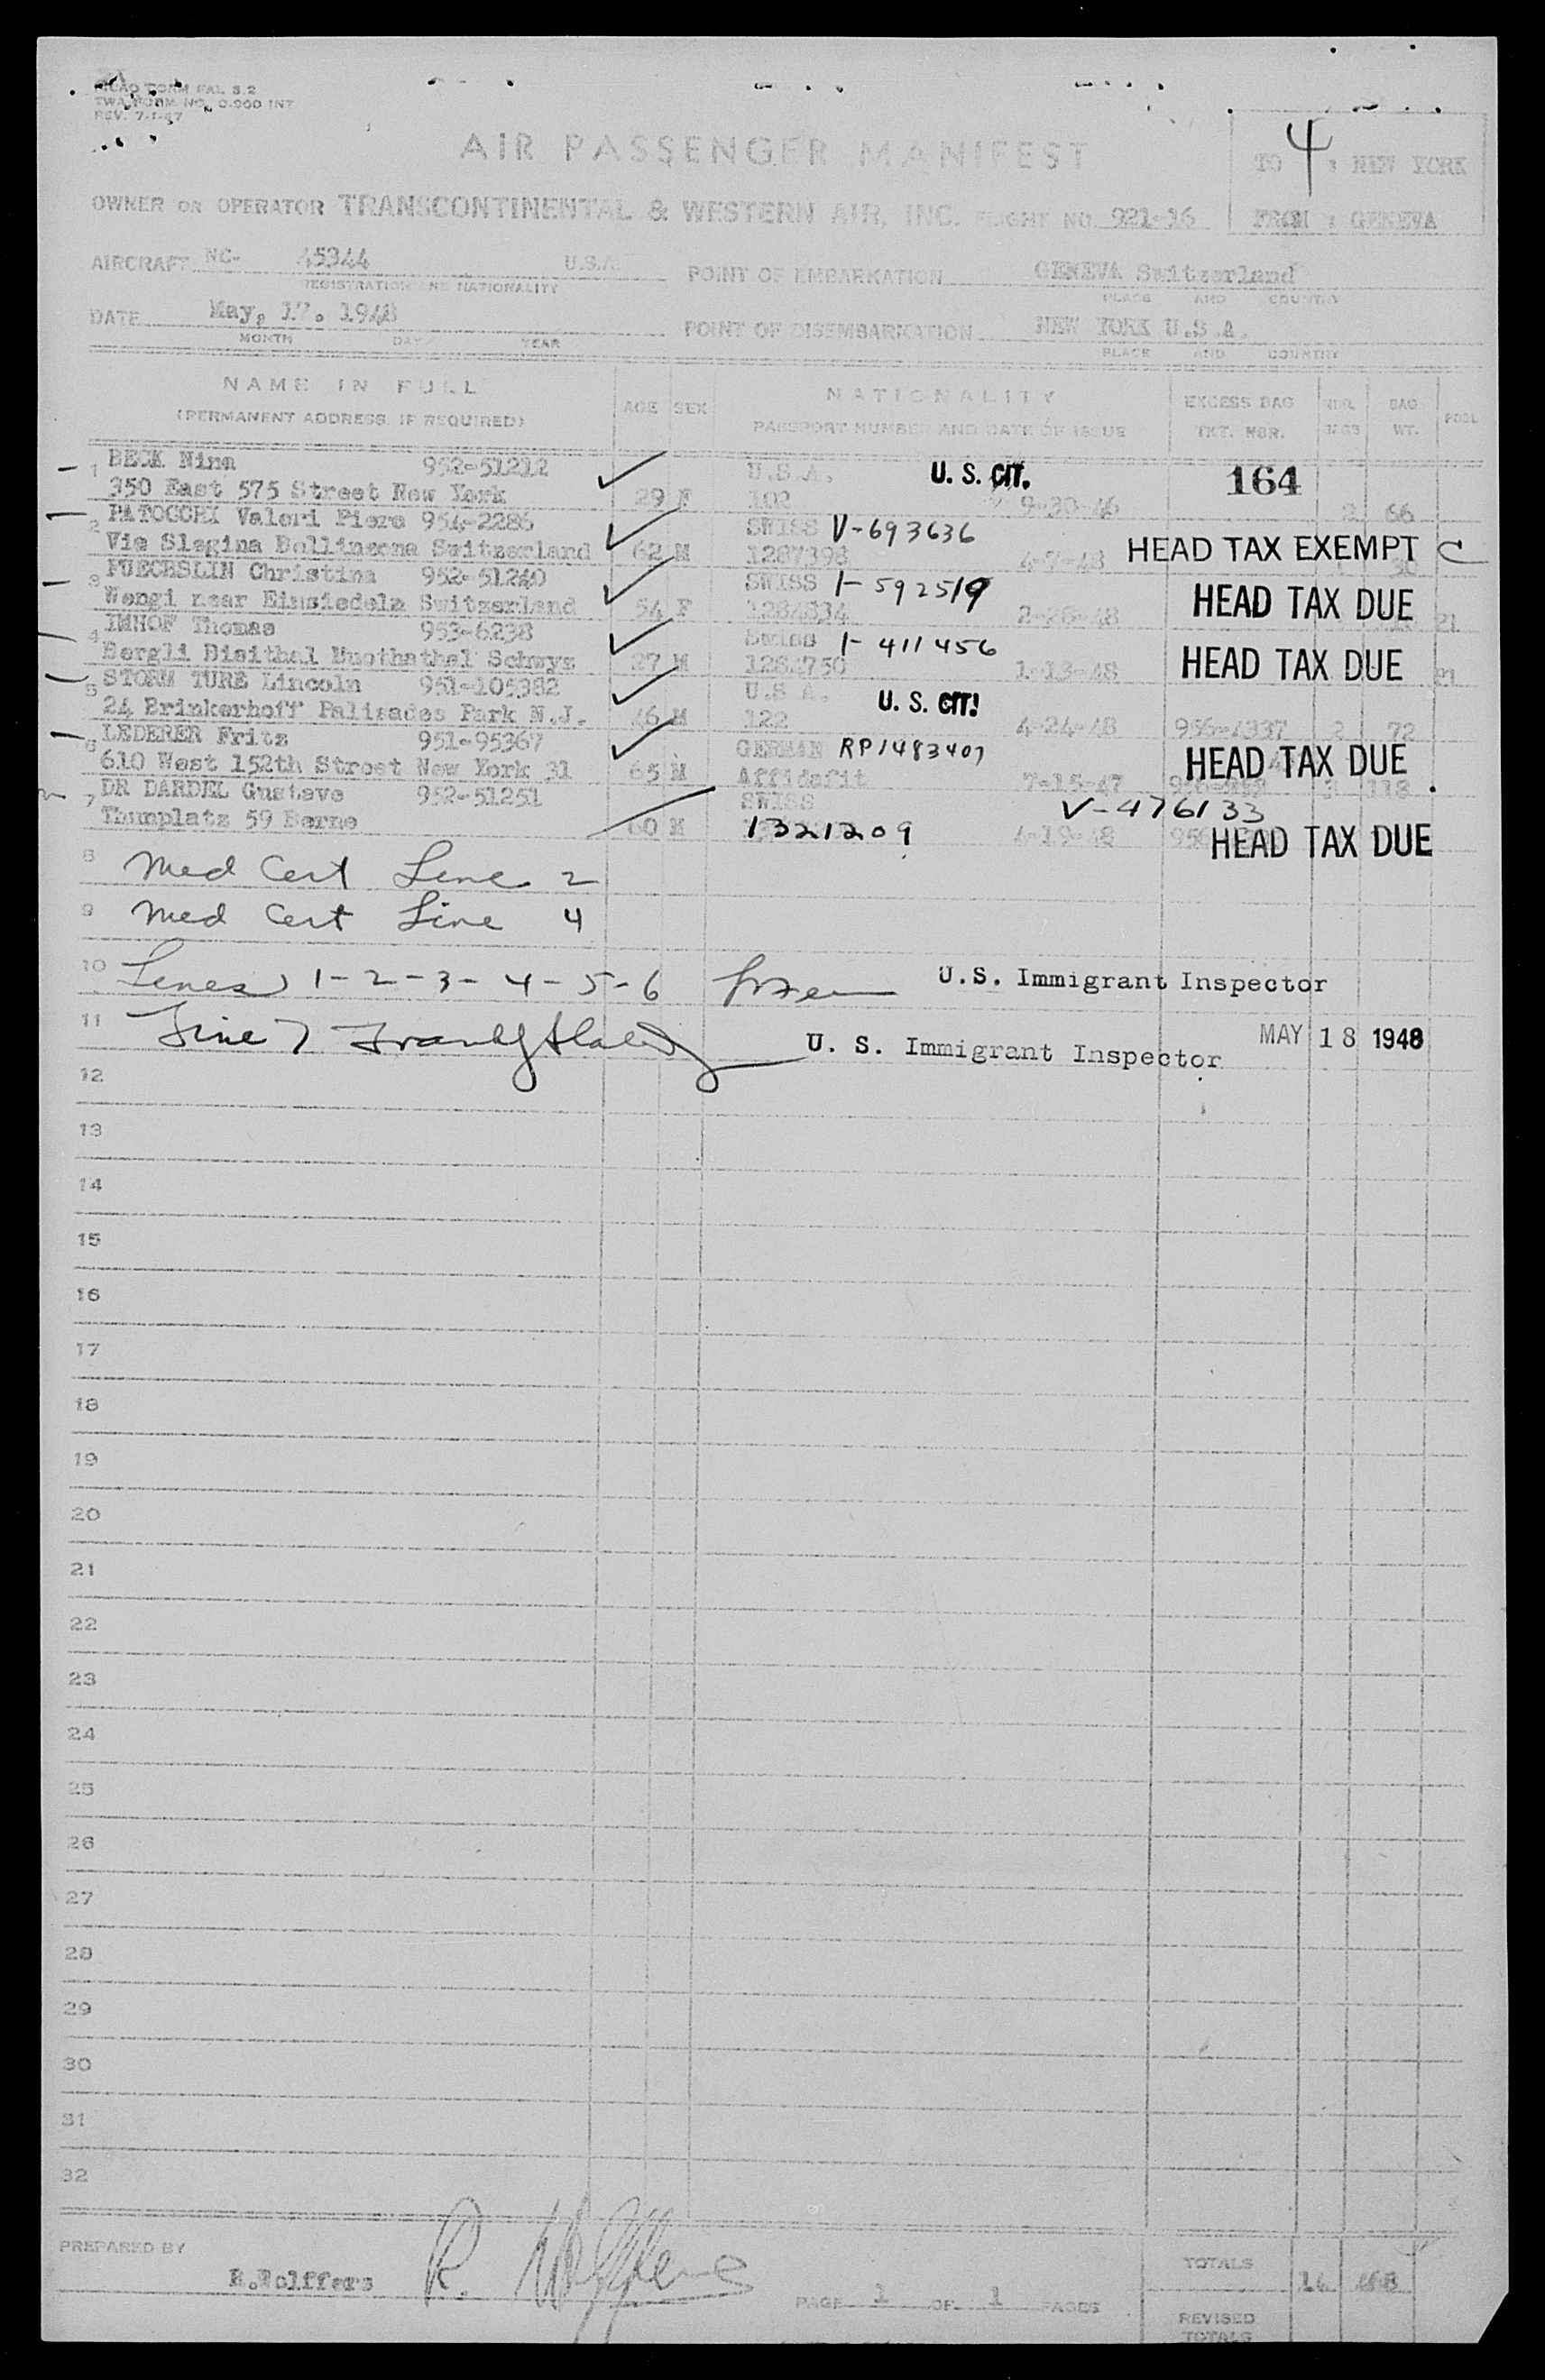 ICAO FORM FAL 3.2
TWA FORM NO. 0-900 INT
REV. 7-1-47
AIR PASSENGER MANIFEST
4
TO : NEW YORK
FROM : GENEVA
OWNER OR OPERATOR TRANSCONTINENTAL & WESTERN AIR, INC. FLIGHT NO. 921-16
AIRCRAFT NC- 45344 U.S.A. POINT OF EMBARKATION GENEVA Switzerland
REGISTRATION AND NATIONALITY PLACE AND COUNTRY
DATE May, 17. 1948 POINT OF DISEMBARKATION NEW YORK U.S.A.
MONTH DAY YEAR PLACE AND COUNTRY
NAME IN FULL AGE SEX NATIONALITY EXCESS BAG BAG
(PERMANENT ADDRESS IF REQUIRED) PASSPORT NUMBER AND DATE OF ISSUE TKT. NBR. BAGS WT.
1 BECK Nina 952-51212 U.S.A. U. S. CIT. 164
350 East 575 Street New York 29 F 102 9-30-46 2 66
2 PATOCCHI Valeri Piero 954-2286 SWISS V-693636
Bellinzona Switzerland 62 M 1287398 4-7-48 HEAD TAX EXEMPT C
3 FUECHSLIN Christina 952-51240 SWISS I-592519
Wengi near Einsiedeln Switzerland 54 F 1284834 2-26-48 HEAD TAX DUE 21
4 IMHOF Thomas 953-6238 Swiss I-411456
Bergli Bisithal Muothathal Schwyz 27 M 1-13-48 HEAD TAX DUE 21
5 STORM TURE Lincoln 951-105382 U.S.A. U. S. CIT!
24 Brinkerhoff Palisades Park N.J. 46 M 122 4-24-48 956-4337 2 72
6 LEDERER Fritz 951-95367 GERMAN RP1483407
610 West 152th Street New York 31 65 M Affidafit 7-15-47 HEAD TAX DUE 3 118
7 DR DARDEL Gustave 952-51251 SWISS V-476133
Thunplatz 59 Berne 60 M 1321209 4-19-48 HEAD TAX DUE
8 Med Cert Line 2
9 Med Cert Line 4
10 Lines 1-2-3-4-5-6 U.S. Immigrant Inspector
11 Line 7 U. S. Immigrant Inspector MAY 18 1948
12
13
14
15
16
17
18
19
20
21
22
23
24
25
26
27
28
29
30
31
32
PREPARED BY
R.Wolffers R. Wolffers
PAGE 1 OF 1 PAGES
TOTALS 14 468
REVISED
TOTALS